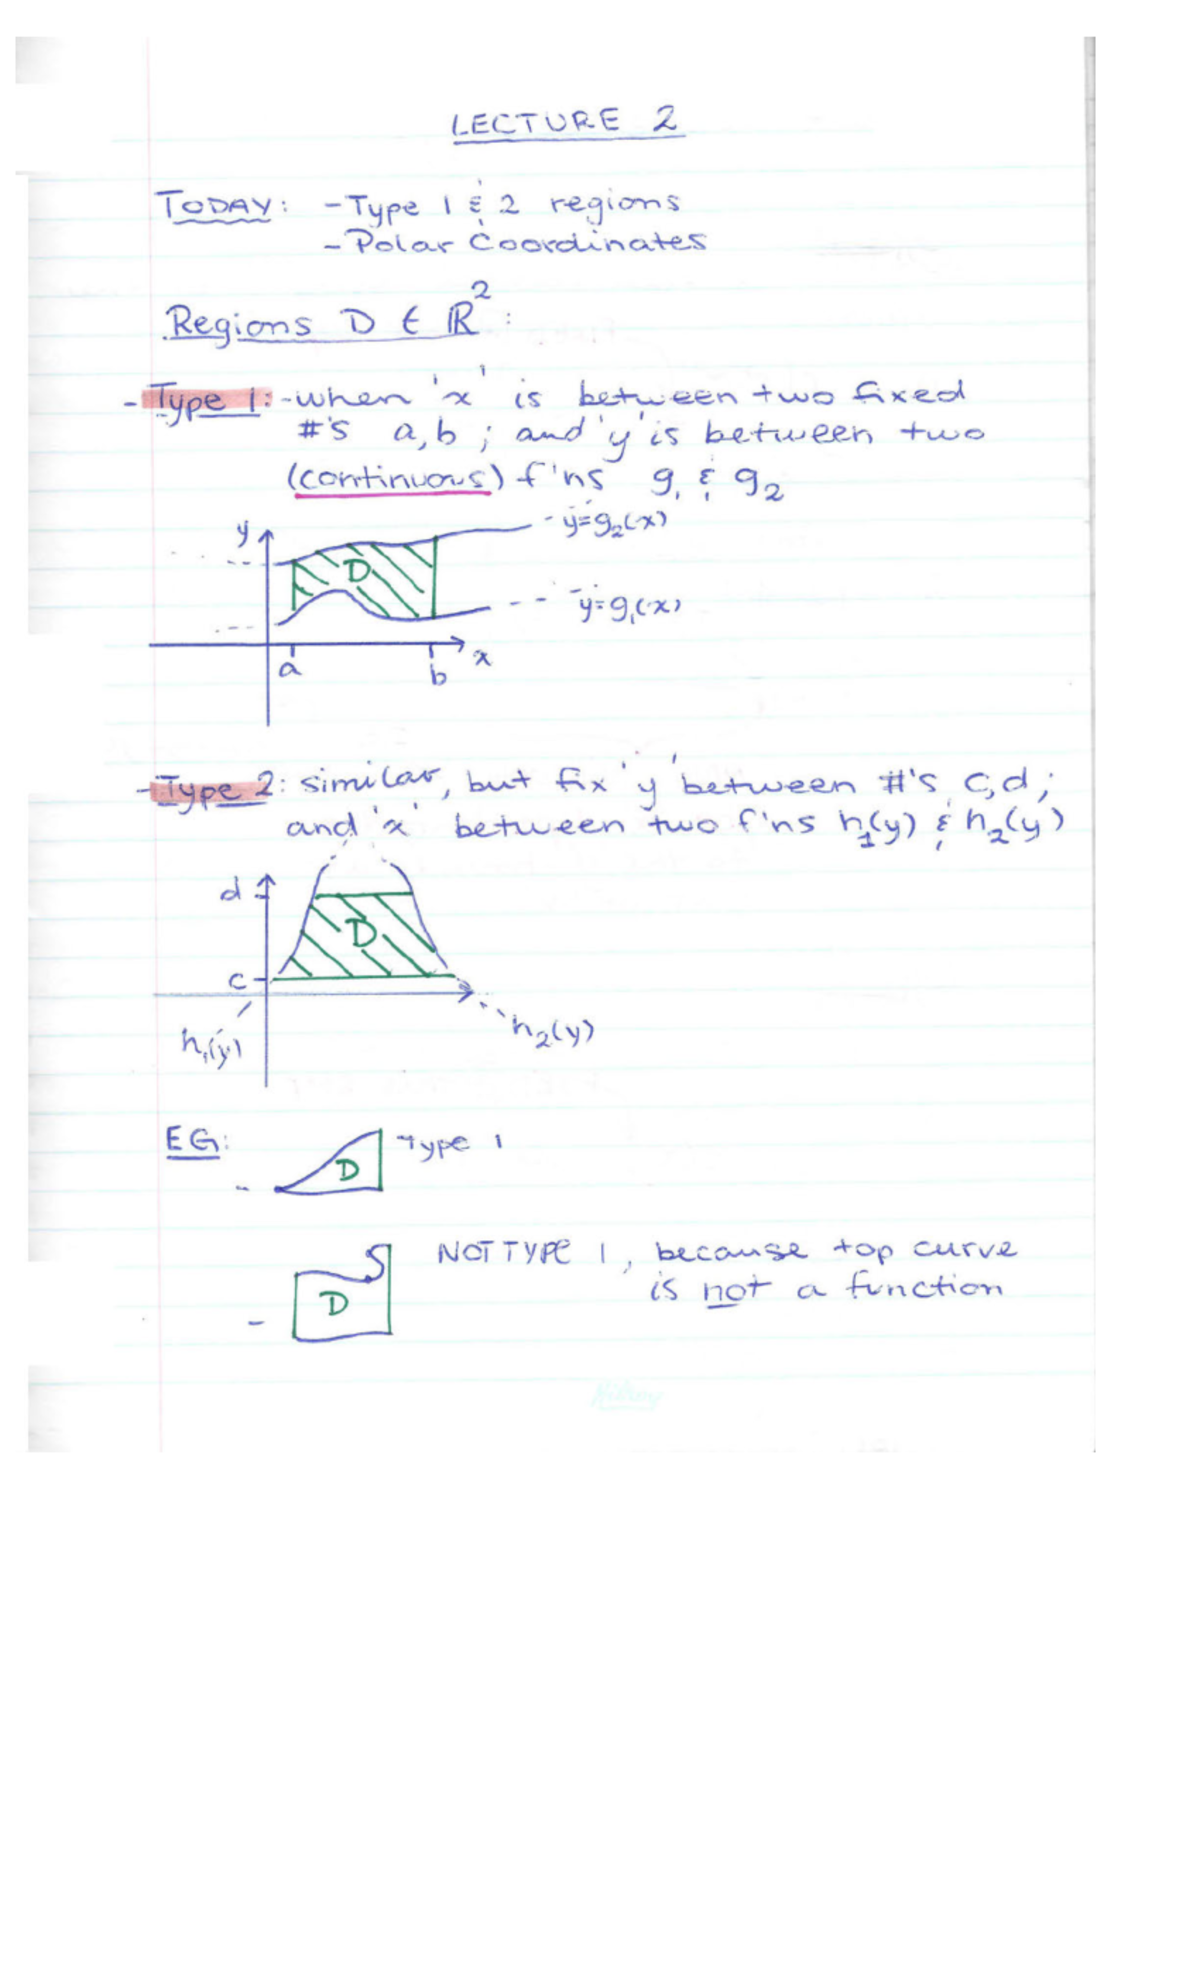 LECTURE 2
TODAY: - Type 1 & 2 regions
- Polar Coordinates
Regions D ∈ ℝ²:
- Type 1: - when 'x' is between two fixed
#'s a, b ; and 'y' is between two
(continuous) f'ns g₁ & g₂
y
y=g₂(x)
D
y=g₁(x)
a
b
x
- Type 2: similar, but fix 'y' between #'s c,d;
and 'x' between two f'ns h₁(y) & h₂(y)
d
D
c
h₁(y)
h₂(y)
EG:
- D Type 1
NOT TYPE 1, because top curve
is not a function
- D